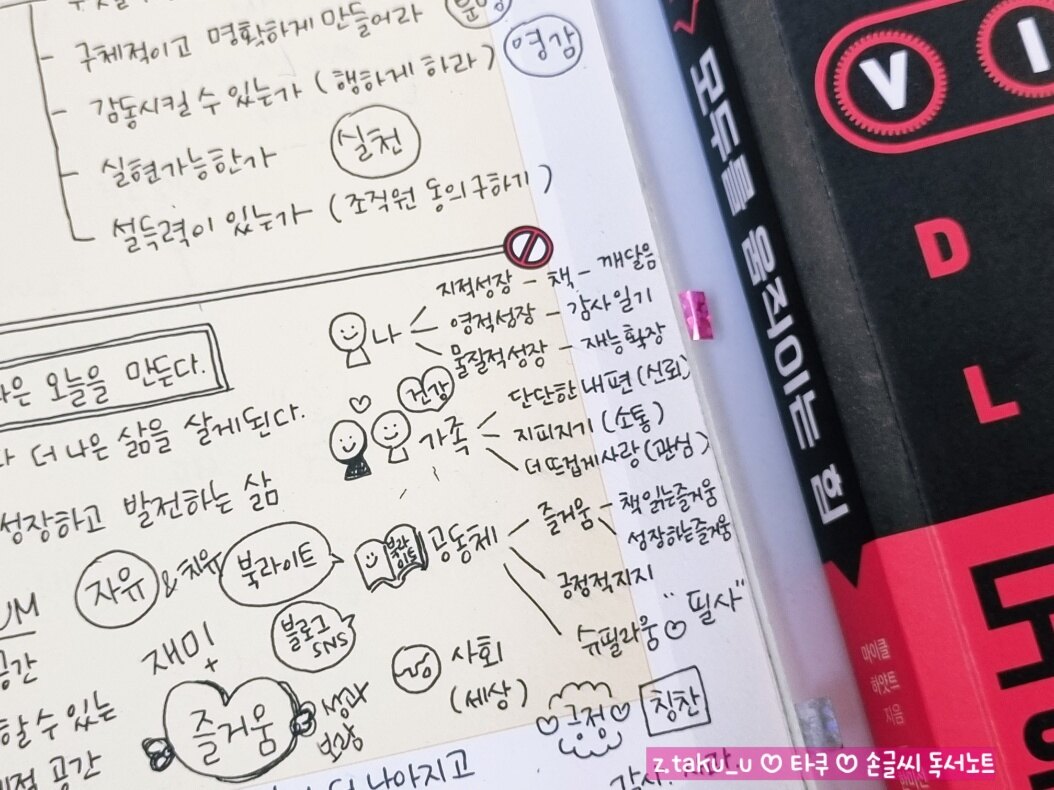 구체적이고 명확하게 만들어라
감동시킬 수 있는가 (행하게 하라) 영감
실현가능한가 실천
설득력이 있는가 (조직원 동의 구하기)
나
지적성장 - 책 - 깨달음
영적성장 - 감사일기
물질적성장 - 재능확장
오늘을 만든다.
건강
가족
단단한 내편 (신뢰)
지피지기 (소통)
더 뜨겁게 사랑 (관심)
더 나은 삶을 살게된다.
성장하고 발전하는 삶
자유 & 치유
북라이트
북라이트
공동체
즐거움 - 책 읽는 즐거움
성장하는 즐거움
긍정적지지
슈필라움 ♡ "필사"
UM
공간
재미
+
블로그
SNS
사회
(세상)
할 수 있는
공간
즐거움
성과
보람
♡ 긍정 ♡
칭찬
더 나아지고
감사.
모두를 움직이는 힘
V I
D
L
마이클
하얏트
지음
z.taku_u ♡ 타쿠 ♡ 손글씨 독서노트